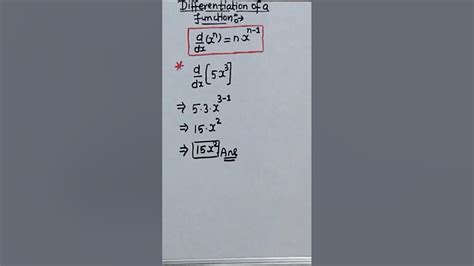 Differentiation of a
function:→
d/dx (xⁿ) = n·xⁿ⁻¹
* d/dx [5x³]
⇒ 5·3·x³⁻¹
⇒ 15·x²
⇒ 15x² Ans